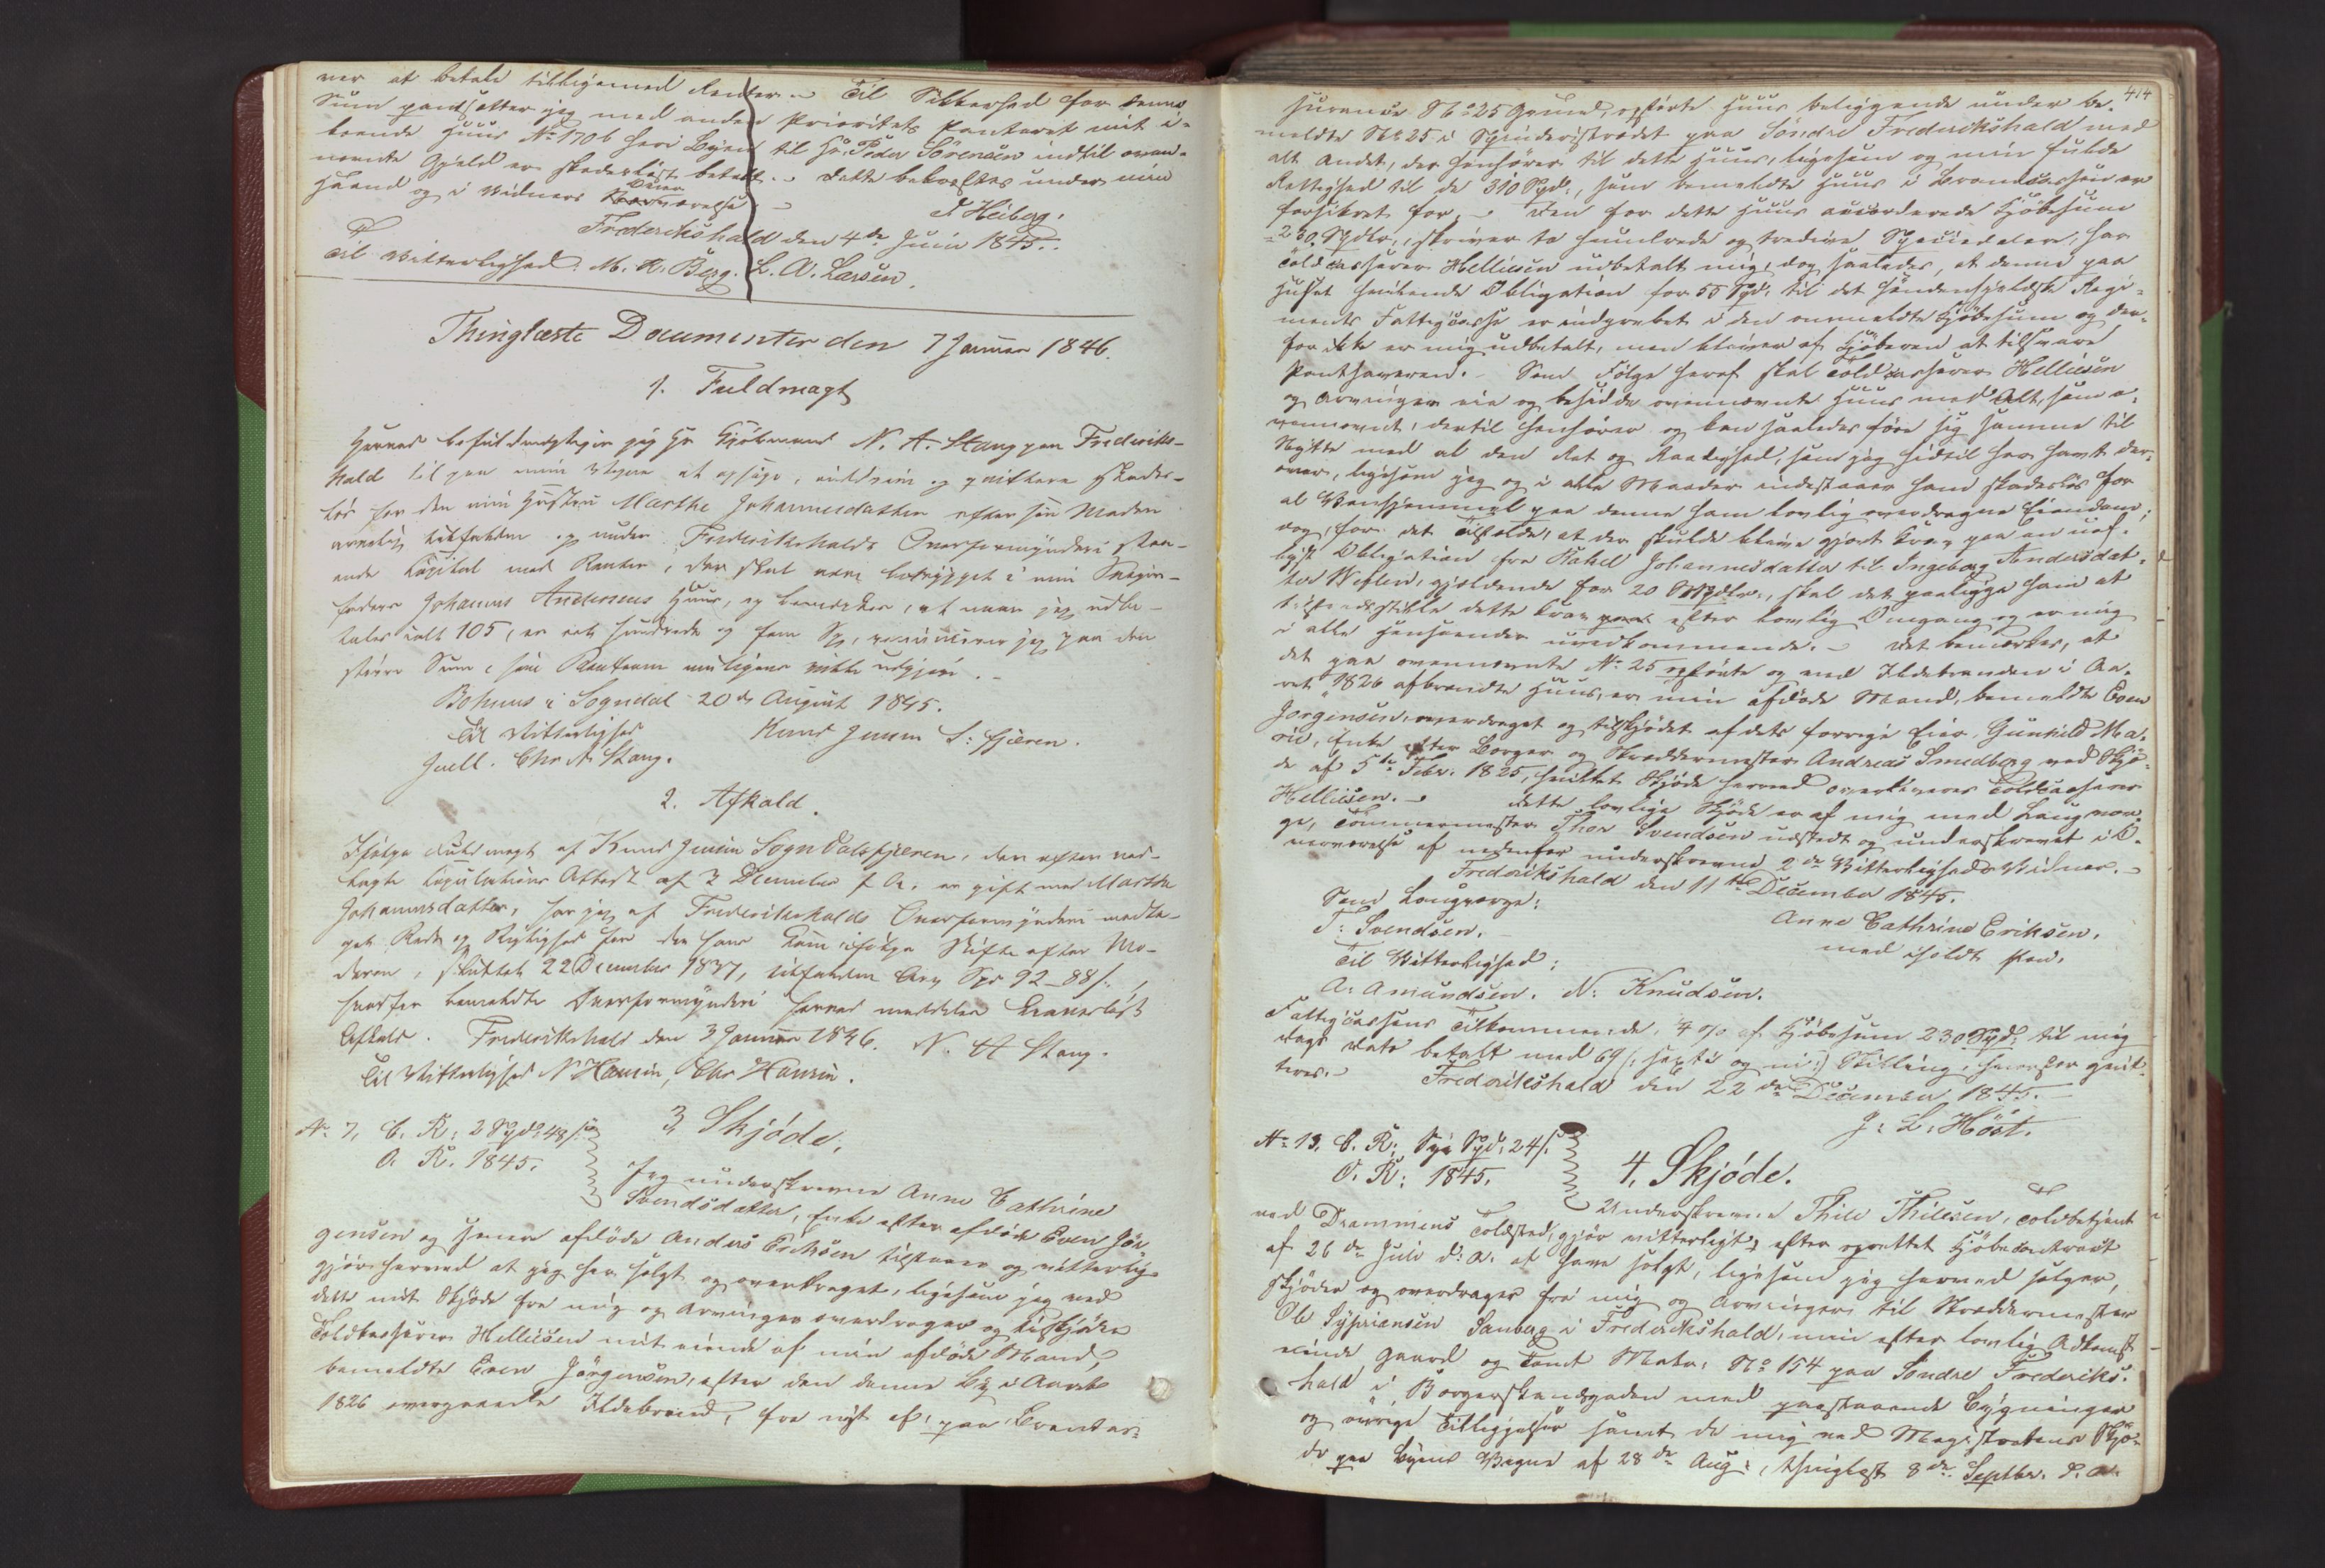 ver at betale tilligemed Renter. – Til Sikkerhed for denne
Sum pantsætter jeg med anden Prioritets Panteret mit i-
boende Huus No 170 b heri Byen til Hr. Peder Sörensen indtil oven-
nævnte Gjæld er skadeslöst betalt. – Dette bekræftes under min
Haand og i Vidners Overværelse
Frederikshald den 4de Juni 1845. Heiberg.
Til Vitterlighed: M. A. Berg. L. A. Larsen.
Thinglæste Documenter den 7 Januar 1846.
1. Fuldmagt
Herved befuldmægtiger jeg Hr Kjöbmand N. A. Stang paa Frederiks-
hald til paa mine Vegne at opsige, inddrive og qvittere skades-
lös for den min Hustru Marthe Johannesdatter efter sin Moder
arvelig tilfaldne og under Frederikshalds Overformynderi staa-
ende Capital med Renter, der skal være i min Sviger-
faders Johannes Andersens Huus, og bemærkes, at naar jeg udbe-
tales ialt 105, er eet hundrede og fem Sp, renuncierer jeg paa den
större Sum, som Renterne muligens maatte udgjöre. –
Bohuus i Sogndal 20de August 1845.
Til Vitterlighed Knud Jensen S: fjæren.
Juell. Chr A Stang.
2. Afkald.
Ifölge Fuldmagt af Knud Jensen Sogndalsfjæren, der efter ved-
lagte Copulations Attest af 2 December f. A. er gift med Marthe
Johannesdatter, har jeg af Frederikshalds Overformynderi modta-
get Rede og Rigtighed for den hans Kone ifölge Skifte efter Mo-
deren, sluttet 22 December 1837, tilfaldne Arv Spd 92-88 s.,
hvorfor bemeldte Overformynderi herved meddeles kravslöst
Afkald. Frederikshald den 3 Januar 1846. N. A Stang.
Til Vitterlighed N Hansen, Chr Hansen.
No 7. C. R: 2 Spd 48 s.
O. R. 1845.
3 Skjöde.
Jeg underskrevne Anne Cathrine
Svendsdatter, Enke efter afdöde Even Jör-
gensen og senere afdöde Anders Eriksen tilstaaer og vitterlig-
gjör herved at jeg har solgt og overdraget, ligesom jeg ved
dette mit Skjöde fra mig og Arvinger overdrager og tilskjöder
Toldkasserer Helliesen mit eiende af min afdöde Mand,
bemeldte Even Jörgensen, efter den denne By i Aaret
1826 overgaaede Ildebrand, fra nyt af, paa Brandas-
414
surance No 25 Grund, opförte Huus beliggende under be-
meldte No 25 i Spinderistrædet paa Söndre Frederikshald med
alt Andet, der henhörer til dette Huus, ligesom og min fulde
Rettighed til de 310 Spd:, som bemeldte Huus i Brandcassen er
forsikret for. – Den for dette Huus accorderede Kjöbesum
230 Spdlr., skriver to hundrede og tredive Speciedaler, har
Toldkasserer Helliesen udbetalt mig, dog saaledes, at denne paa
Huset heftende Obligation for 55 Spd: til det söndenfjeldske Regi-
ments Fattigcasse er indgrebet i den anmeldte Kjöbesum og der-
for ikke er mig udbetalt, men bliver af Kjöberen at tilsvare
Panthaveren. – Som Fölge heraf skal Toldkasserer Helliesen
og Arvinger eie og besidde ovennævnte Huus med Alt, som o-
vennævnt, dertil henhörer og kan saaledes före sig samme til
Nytte med al den Ret og Rettighed, som jeg hidtil har havt der-
over, ligesom jeg og i alle Maader indestaaer ham skadeslös for
al Vanhjemmel paa denne ham lovlig overdragne Eiendom;
dog, for det Tilfælde, at der skulde blive gjort Krav paa en uaf-
lyst Obligation fra Rahel Johannesdatter til Ingeborg Andersdat-
ter Weflen, gjeldende for 20 Spdlr., skal det paaligge ham at
tilfredsstille dette Krav efter lovlig Omgang og er mig
i alle Henseender uvedkommende. – Det bemærkes, at
det paa ovennævnte No 25 opförte og ved Ildebranden i Aa-
ret 1826 afbrændte Huus, er min afdöde Mand, bemeldte Even
Jörgensen, overdraget og tilskjödet af dets forrige Eier, Gunhild Ma-
rie, Enke efter Borger og Skræddermester Andreas Smedberg ved Skjö-
de af 5te Febr. 1825, hvilket Skjöde herved overleveres Toldkasserer
Helliesen. – Dette lovlige Skjöde er af mig med Laugvær-
ge, Tömmermester Thor Svendsen udstedt og underskrevet i O-
verværelse af nedenfor underskrevne 2de Vitterligheds Vidner. –
Frederikshald den 11te December 1845.
Som Laugværge:
Anne Cathrine Eriksen.
T: Svendsen. med iholdt Pen.
Til Vitterlighed:
A: Amundsen. N: Knudsen.
Fattigcassens Tilkommende, 4 % af Kjöbesum 230 Spd: til mig
Dags Dato betalt med 69 (: septi og ni :) Skilling, hvorfor qvit-
teres. – Frederikshald den 22de December 1845. –
J: L. Höst.
No 13. C. R: Syv Spd: 24 s.
O. R: 1845.
4. Skjöde.
Underskrevne Thile Thilesen, Toldbetjent
ved Drammens Toldsted, gjör vitterligt, efter oprettet Kjöbecontract
af 26de Juli d: A. at have solgt, ligesom jeg herved sælger,
skjöder og overdrager fra mig og Arvinger til Skræddermester
Ole Syversensen Sanberg i Frederikshald, min efter lovlig Adkomst
eiende Gaard og Tomt Matr: No 154 paa Söndre Frederiks-
hald i Borgerskandsgaden med paastaaende Bygninger
og övrige Tilliggelser samt de mig ved Magistratens Skjö-
de paa Byens Vegne af 28de Aug:, thinglæst 8de Septbr. d. A.